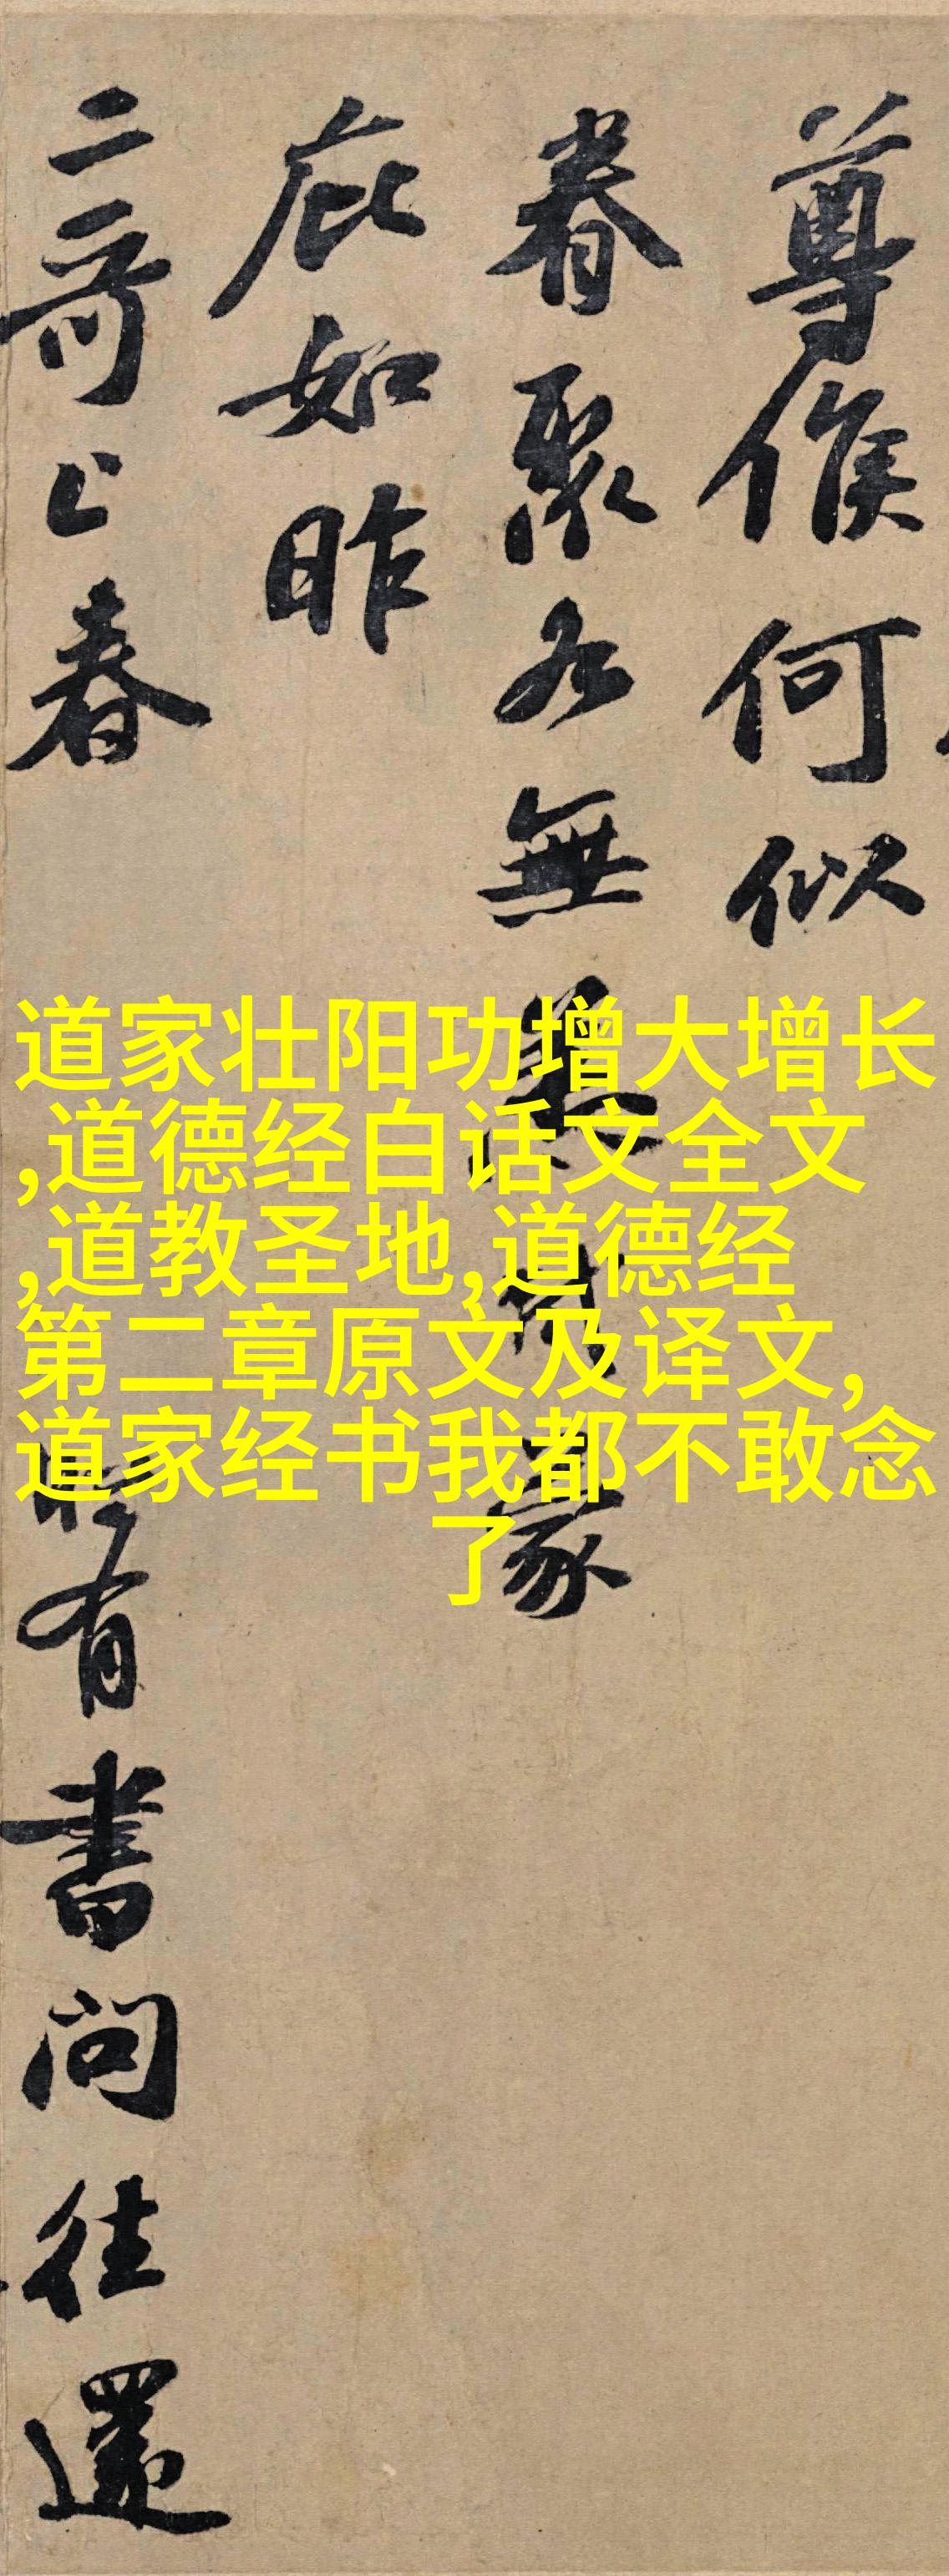 尊候何似
眷聚各無恙
蒙
庇如昨
二哥上春
有書問往還
道家壮阳功增大增长
,道德经白话文全文
,道教圣地,道德经
第二章原文及译文,
道家经书我都不敢念
了